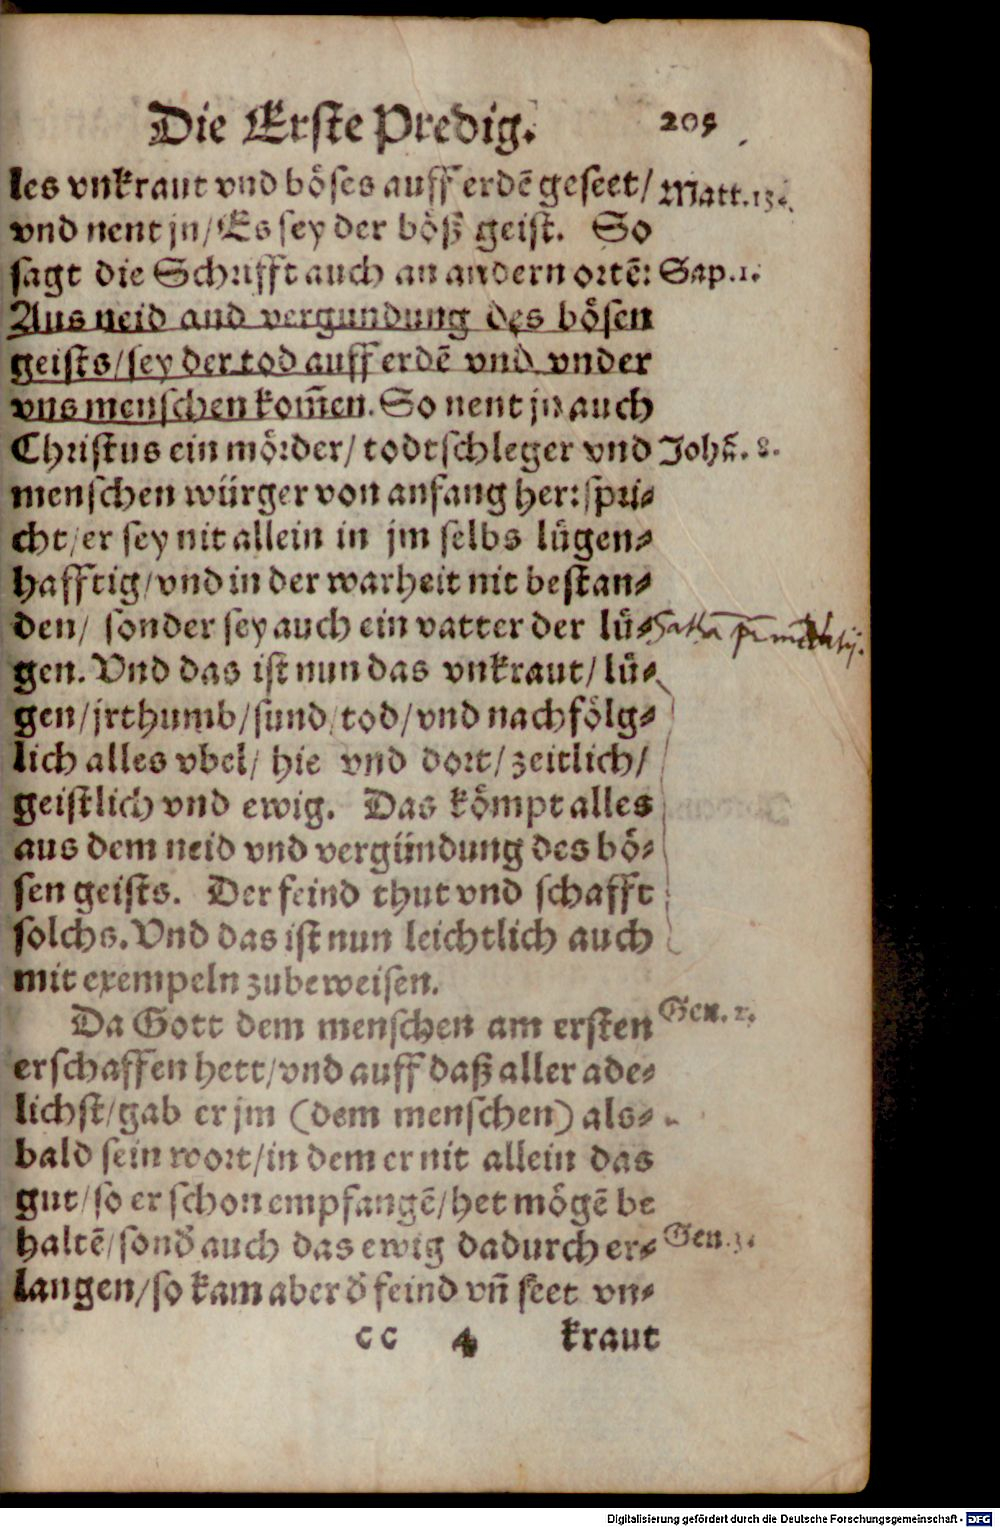 Die Erste Predig. 205
les vnkraut vnd böses auff erdē geseet/ Matt.13.
vnd nent jn/ Es sey der böß geist. So
sagt die Schrifft auch an andern ortē: Sap.1.
Aus neid and vergundung des bösen
geists/sey der tod auff erdē vnd vnder
vns menschen kom̄en. So nent jn auch
Christus ein mörder/ todtschleger vnd Johā. 8.
menschen würger von anfang her: spri-
cht/ er sey nit allein in jm selbs lügen-
hafftig/ vnd in der warheit nit bestan-
den/ sonder sey auch ein vatter der lü-
gen. Vnd das ist nun das vnkraut/ lü-
gen/ jrthumb/ sund/ tod/ vnd nachfölg-
lich alles vbel/ hie vnd dort/ zeitlich/
geistlich vnd ewig. Das kömpt alles
aus dem neid vnd vergündung des bö-
sen geists. Der feind thut vnd schafft
solchs. Vnd das ist nun leichtlich auch
mit exempeln zubeweisen.
Da Gott dem menschen am ersten Gen. 2.
erschaffen hett/ vnd auff daß aller ade-
lichst/ gab er jm (dem menschen) als-
bald sein wort/ in dem er nit allein das
gut/ so er schon empfangē/ het mögē be
haltē/ sond̄ auch das ewig dadurch er- Gen.3.
langen/ so kam aber d̄ feind vn̄ seet vn-
cc 4 kraut
Digitalisierung gefördert durch die Deutsche Forschungsgemeinschaft - DFG